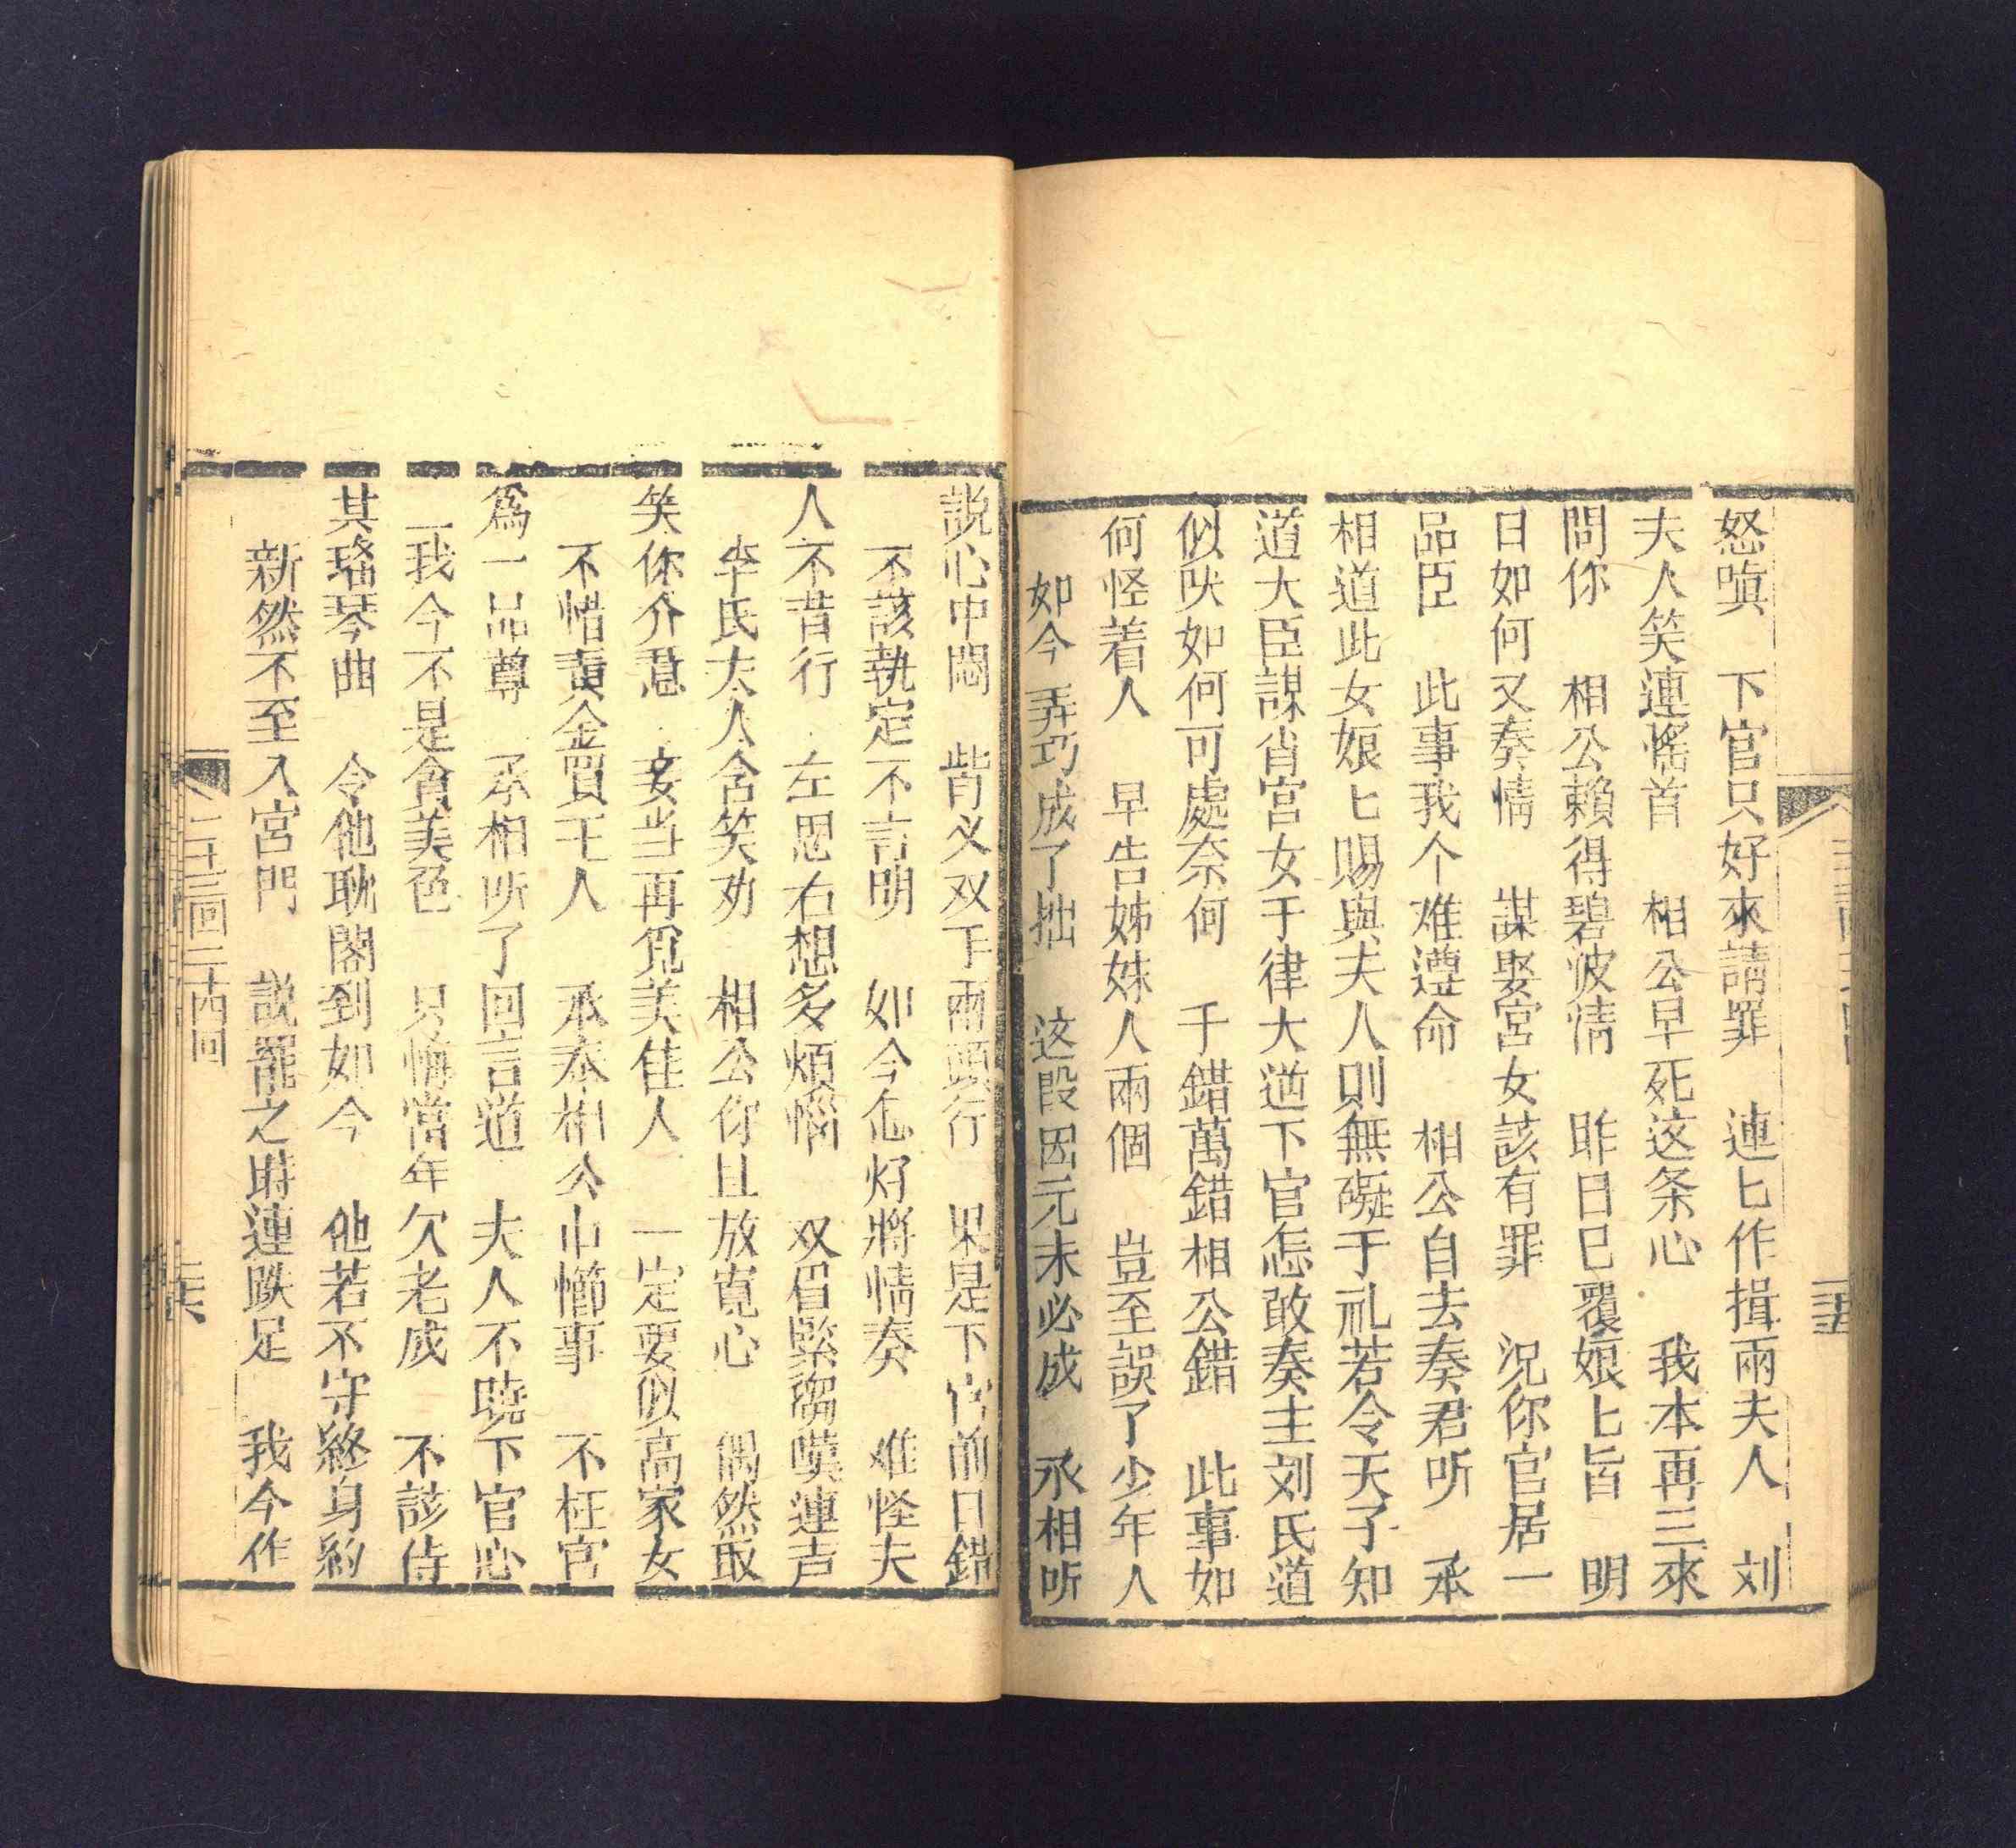 怒嗔　下官只好來請罪　連匕作揖兩夫人　刘
夫人笑連慛首　相公早死这条心　我本再三來
問你　相公賴得碧波清　昨日已覆娘匕旨　明
日如何又奏情　謀娶宮女該有罪　况你官居一
品臣　此事我个难遵命　相公自去奏君听　承
相道此女娘匕賜與夫人則無礙于礼若令天子知
道大臣謀肖宮女于律大逆下官怎敢奏主刘氏道
似此如何可處奈何　千錯萬錯相公錯　此事如
何怪着人　早告姊妹人兩個　豈至誤了少年人
如今弄巧成了拙　这段因元未必成　承相听
説心中悶　背义双手兩頭行　果是下官前日錯
不該執定不言明　如今怎好將情奏　难怪夫
人不昔行　左思右想多煩惱　双眉緊縐嘆連声
李氏夫人含笑劝　相公你且放寬心　偶然取
笑你介意　妾当再覓美佳人　一定要似高家女
不惜黄金買千人　承奉相公巾櫛事　不枉官
爲一品尊　承相听了回言道　夫人不曉下官心
我今不是貪美色　只悔當年欠老成　不該侍
其瑤琴曲　令他耽閣到如今　他若不守終身約
新然不至入宮門　説罷之時連跌足　我今作
二十三回二十四回